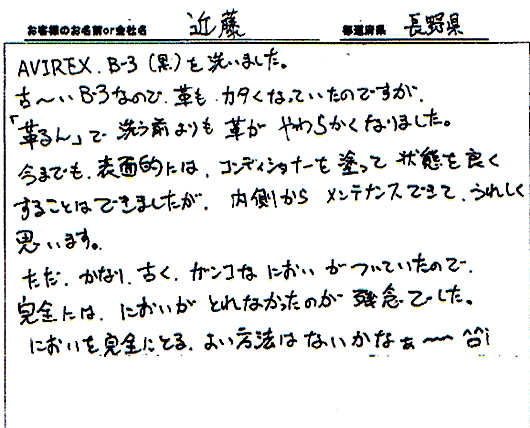 お客様のお名前or会社名 近藤 都道府県 長野県
AVIREX. B-3 (黒)を洗いました。
古〜いB-3なので、革も カタくなっていたのですが、
「革るん」で 洗う前よりも 革が やわらかくなりました。
今までも、表面的には、コンディショナーを塗って 状態を良く
することはできましたが、内側から メンテナンスできて、うれしく
思います。
ただ、かなり、古く、ガンコな におい がついていたので、
完全には、においが とれなかったのが 残念でした。
においを完全にとる、よい方法はないかなぁ〜 ^^;